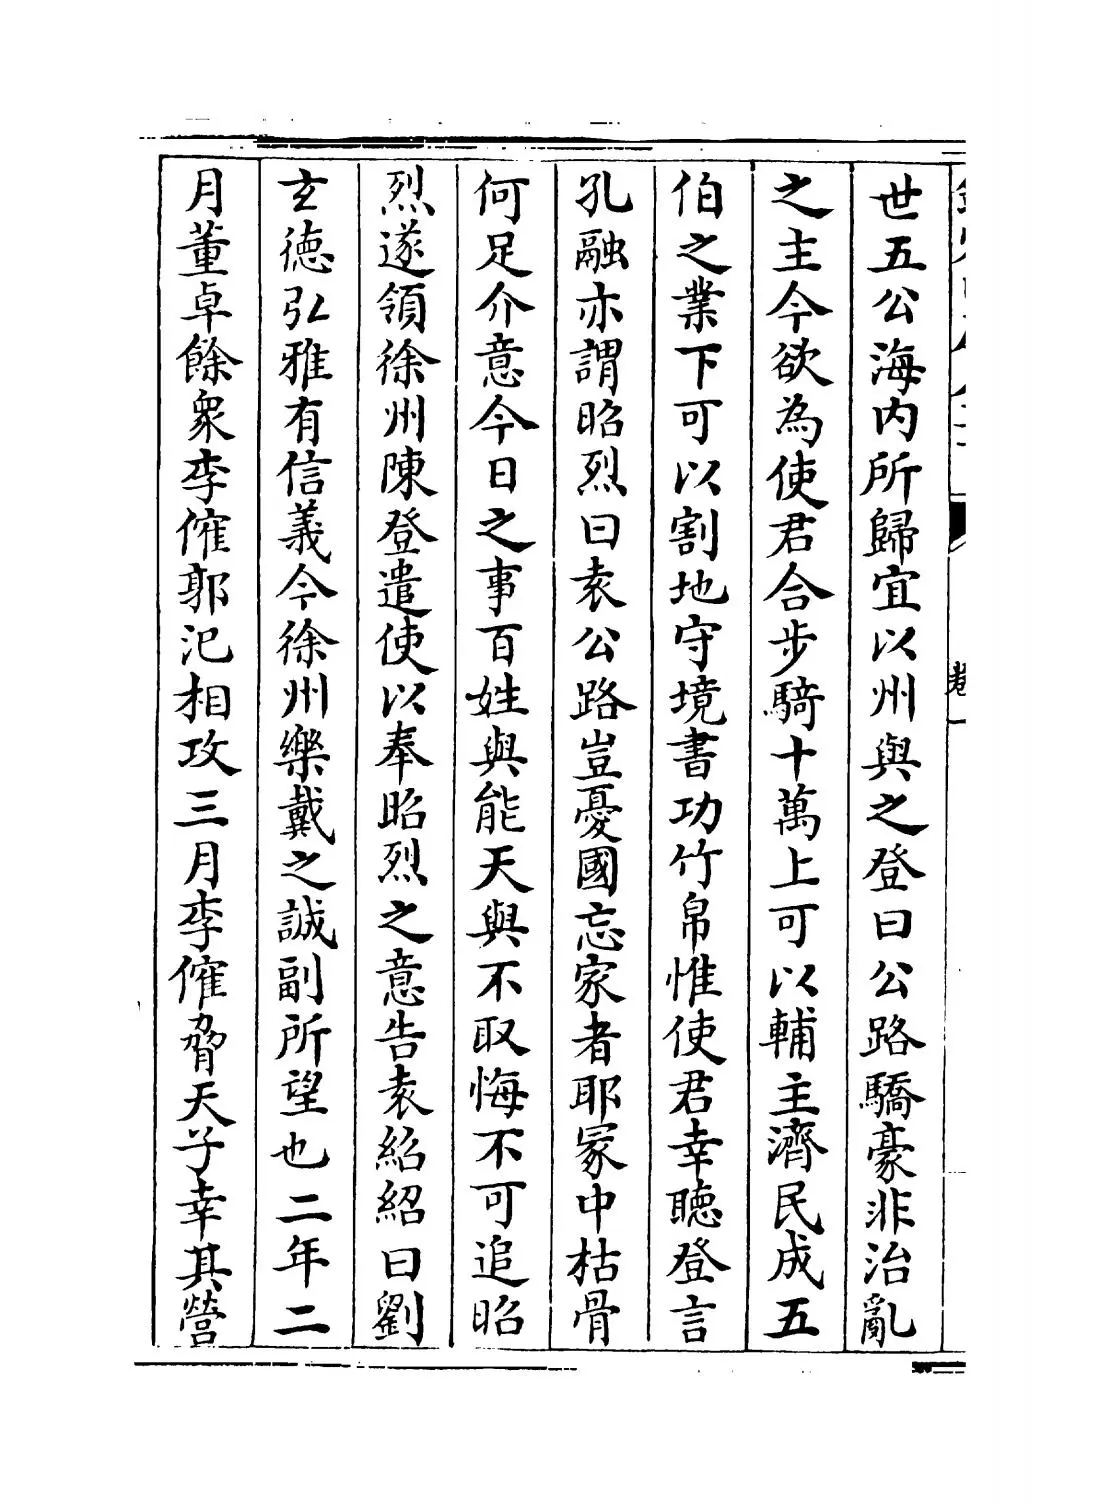 世五公海内所歸宜以州與之登曰公路驕豪非治亂
之主今欲為使君合步騎十萬上可以輔主濟民成五
伯之業下可以割地守境書功竹帛惟使君幸聽登言
孔融亦謂昭烈曰袁公路豈憂國忘家者耶冢中枯骨
何足介意今日之事百姓與能天與不取悔不可追昭
烈遂領徐州陳登遣使以奉昭烈之意告袁紹紹曰劉
玄德弘雅有信義今徐州樂戴之誠副所望也二年二
月董卓餘衆李傕郭汜相攻三月李傕脅天子幸其營